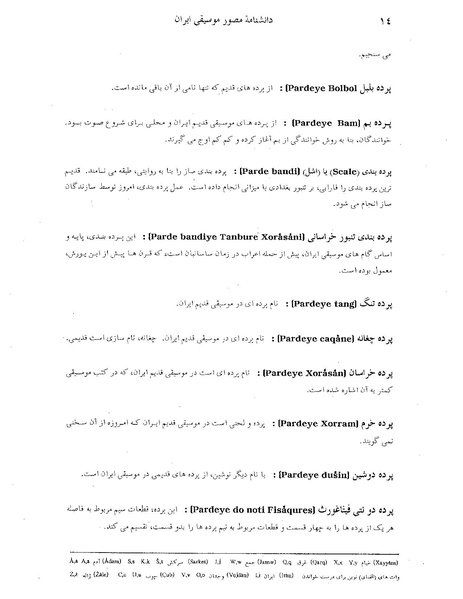 ۱٤
دانشنامهٔ مصور موسیقی ایران
می سنجیم.
پرده بلبل [Pardeye Bolbol] : از پرده های قدیم که تنها نامی از آن باقی مانده است.
پرده بم [Pardeye Bam] : از پرده های موسیقی قدیم ایران و محلی برای شروع صوت بود.
خوانندگان، بنا به روش خوانندگی از بم آغاز کرده و کم کم اوج می گیرند.
پرده بندی (Scale) یا (اشل) [Parde bandi] : پرده بندی ساز را بنا به روایتی، طبقه می نامند. قدیم
ترین پرده بندی را فارابی، بر تنبور بغدادی یا میزانی انجام داده است. عمل پرده بندی، امروز توسط سازندگان
ساز انجام می شود.
پرده بندی تنبور خراسانی [Parde bandiye Tanbure Xorâsâni] : این پرده بندی، پایه و
اساس گام های موسیقی ایران، پیش از حمله اعراب در زمان ساسانیان است، که قرن ها پیش از این یورش،
معمول بوده است.
پرده تنگ [Pardeye tang] : نام پرده ای در موسیقی قدیم ایران.
پرده چغانه [Pardeye caqâne] : نام پرده ای در موسیقی قدیم ایران. چغانه، نام سازی است قدیمی.
پرده خراسان [Pardeye Xorâsân] : نام پرده ای است در موسیقی قدیم ایران، که در کتب موسیقی
کمتر به آن اشاره شده است.
پرده خرم [Pardeye Xorram] : پرده و لحنی است در موسیقی قدیم ایران که امروزه از آن سخنی
نمی گویند.
پرده دوشین [Pardeye dušin] : با نام دیگر نوشین، از پرده های قدیمی در موسیقی ایران است.
پرده دو نتی فیثاغورث [Pardeye do noti Fisâqures] : این پرده، قطعات سیم مربوط به فاصله
هر یک از پرده ها را به چهار قسمت و قطعات مربوط به نیم پرده ها را بدو قسمت، تقسیم می کند.
Â,â A,a آدم (Âdam) S,s K,k Š,š سرکش (Sarkeš) J,j جمع W,w (Jamw) Q,q غرق (Qarq) X,x V,y خیام (Xayyâm)